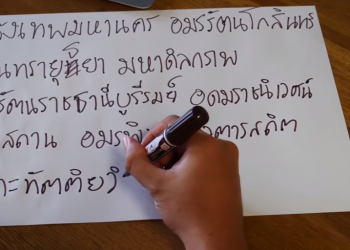 รุงเทพมหานคร อมรรัตนโกสินทร์
นทรายุธยา มหาดิลกภพ
รัตนราชธานีบูรีรมย์ อุดมราชนิเวศน์
สถาน อมรพิ วตารสถิต
ะทัตติยวิ